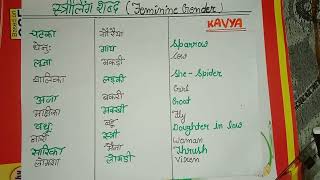 स्त्रीलिंग शब्द (Feminine Gender)
KAVYA
चटका गौरैया Sparrow
धेनुः गाय Cow
लूता मकड़ी She-Spider
बालिका लड़की Girl
अजा बकरी Goat
मक्षिका मक्खी Fly
वधू बहू Daughter in law
नारी स्त्री Woman
सारिका मैना Thrush
लोमशा लोमड़ी Vixen